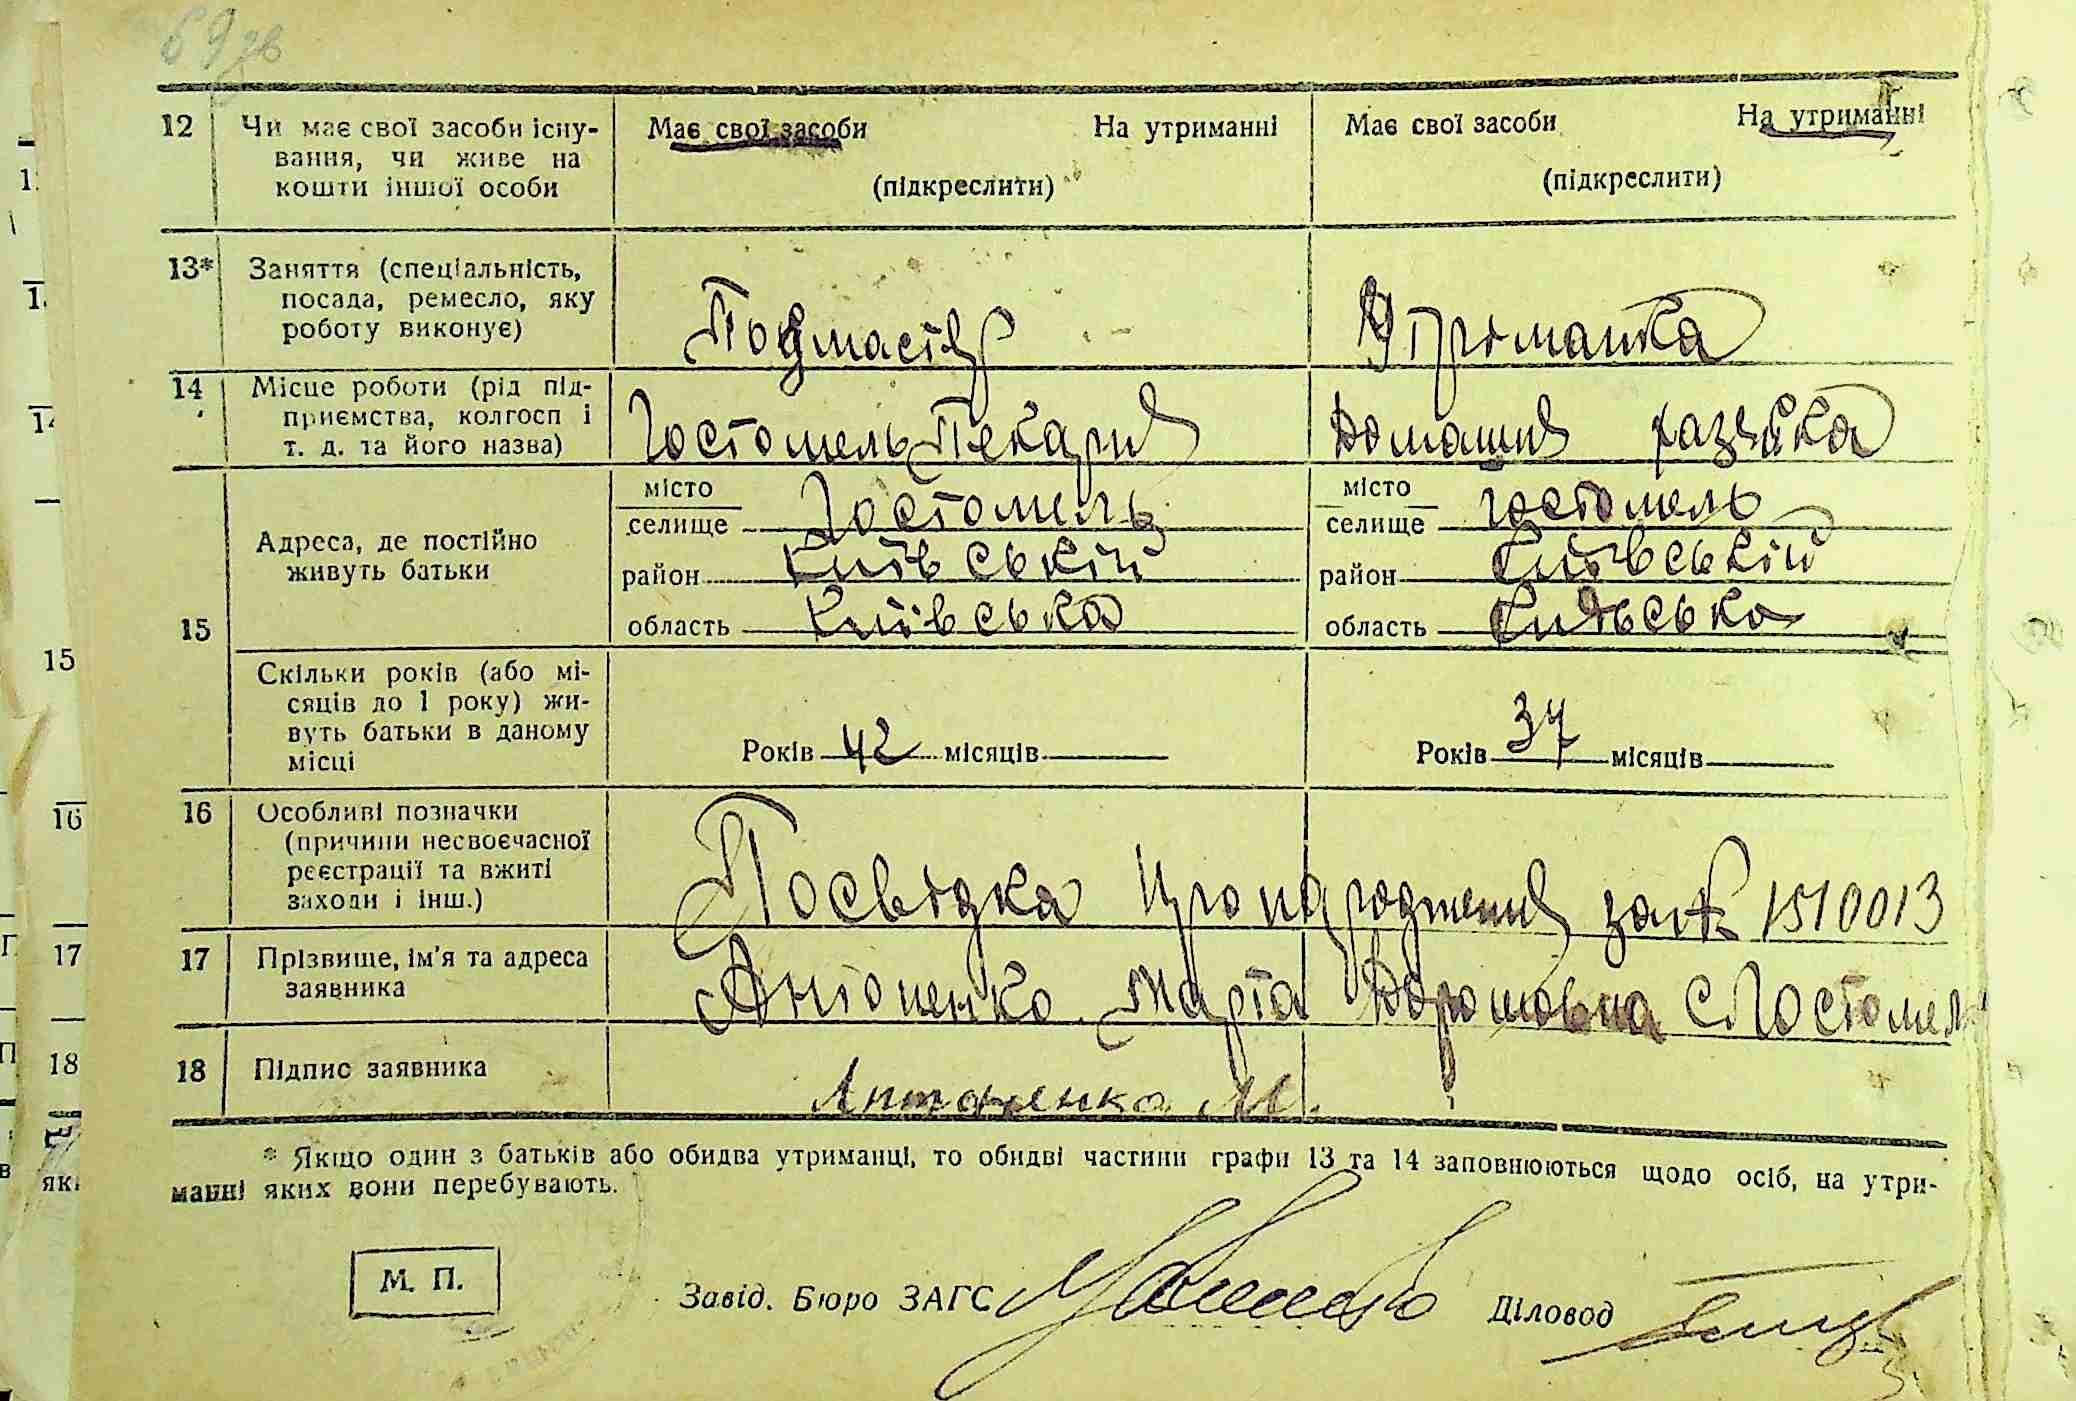 69зв
12 Чи має свої засоби існу- Має свої засоби На утриманні Має свої засоби На утриманні
вання, чи живе на
кошти іншої особи (підкреслити) (підкреслити)
13* Заняття (спеціальність,
посада, ремесло, яку
роботу виконує) Подмастер Утриманка
14 Місце роботи (рід під-
приємства, колгосп і Гостомель Пекарня Домашня хазяйка
т. д. та його назва)
місто місто
селище Гостомель селище Гостомель
Адреса, де постійно
живуть батьки район Київській район Київській
15 область Київська область Київська
Скільки років (або мі-
сяців до 1 року) жи-
вуть батьки в даному Років 42 місяців Років 37 місяців
місці
16 Особливі позначки
(причини несвоєчасної
реєстрації та вжиті Посвідка про народження за № 1510013
заходи і інш.)
17 Прізвище, ім'я та адреса
заявника Антоненко Марта с Гостомель
18 Підпис заявника Антоненко М.
* Якщо один з батьків або обидва утриманці, то обидві частини графи 13 та 14 заповнюються щодо осіб, на утри-
манні яких вони перебувають.
М. П.
Завід. Бюро ЗАГС Діловод